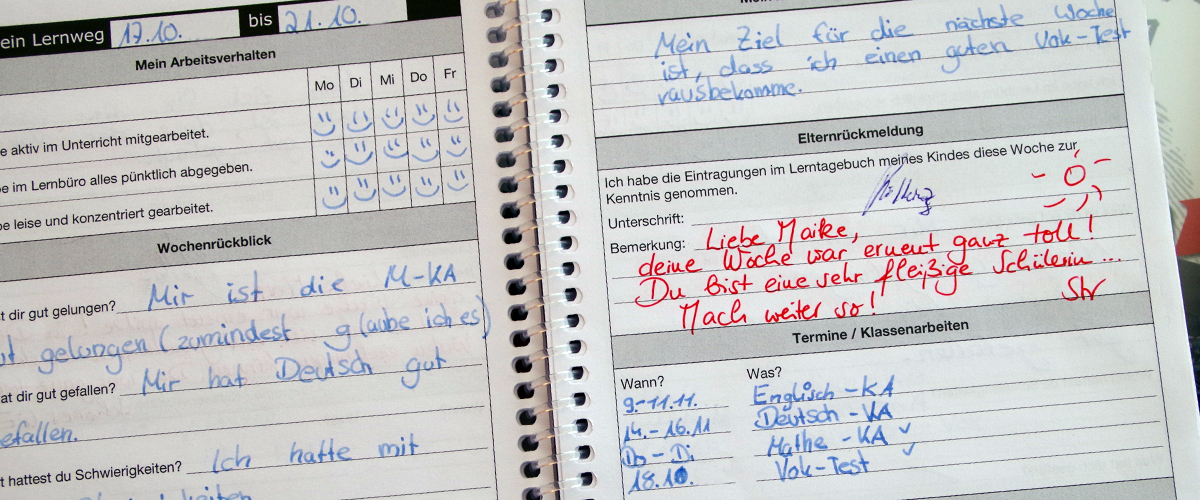 ein Lernweg 17.10. bis 21.10.
Mein Arbeitsverhalten
Mo Di Mi Do Fr
e aktiv im Unterricht mitgearbeitet.
e im Lernbüro alles pünktlich abgegeben.
be leise und konzentriert gearbeitet.
Wochenrückblick
t dir gut gelungen? Mir ist die M-KA
gelungen (zumindest glaube ich es)
at dir gut gefallen? Mir hat Deutsch gut
efallen.
t hattest du Schwierigkeiten? Ich hatte mit
Mein Ziel für die nächste Woche
ist, dass ich einen guten Vok-Test
rausbekomme.
Elternrückmeldung
Ich habe die Eintragungen im Lerntagebuch meines Kindes diese Woche zur
Kenntnis genommen.
Unterschrift:
Bemerkung: Liebe Maike,
deine Woche war erneut ganz toll!
Du bist eine sehr fleißige Schülerin ...
Mach weiter so!
Termine / Klassenarbeiten
Wann? Was?
9.-11.11. Englisch-KA
14.-16.11 Deutsch-KA
Do-Di Mathe-KA
18.10. Vok-Test